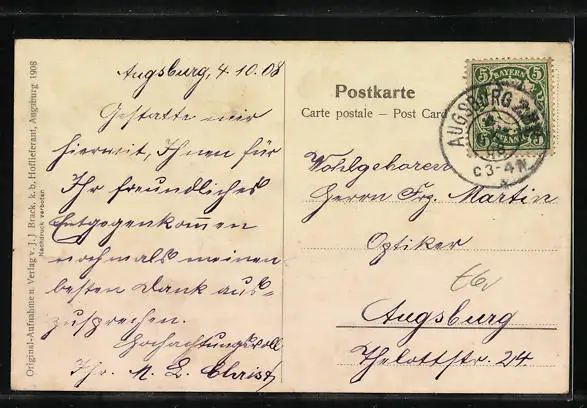 Original-Aufnahme u. Verlag v. J. J. Brack, k. b. Hoflieferant, Augsburg 1908
Nachdruck verboten
Augsburg, 4.10.08
Gestatte mir
hiermit, Ihnen für
Ihr freundliches
Entgegenkommen
nochmals meinen
besten Dank aus-
zusprechen.
Hochachtungsvoll
Ihr. M. L. Christ
Postkarte
Carte postale – Post Card
5 BAYERN 5
AUGSBURG
C3-4N
Wohlgeboren
Herrn Frz. Martin
Optiker
Augsburg
Thelottstr. 24.